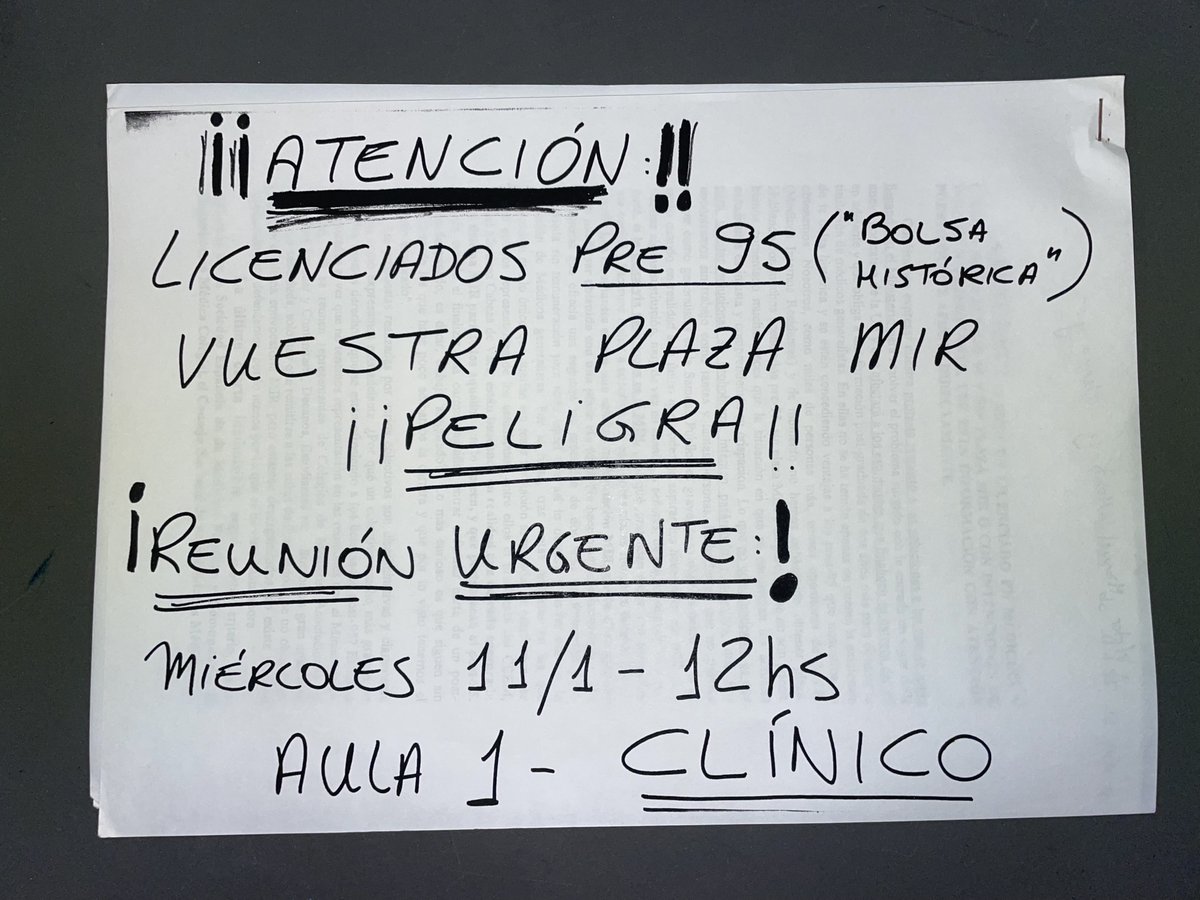 ¡¡¡ATENCIÓN:!!
LICENCIADOS PRE 95 ("BOLSA HISTÓRICA")
VUESTRA PLAZA MIR
¡¡PELIGRA!!
¡REUNIÓN URGENTE:!
MIÉRCOLES 11/1 - 12hs
AULA 1 - CLÍNICO